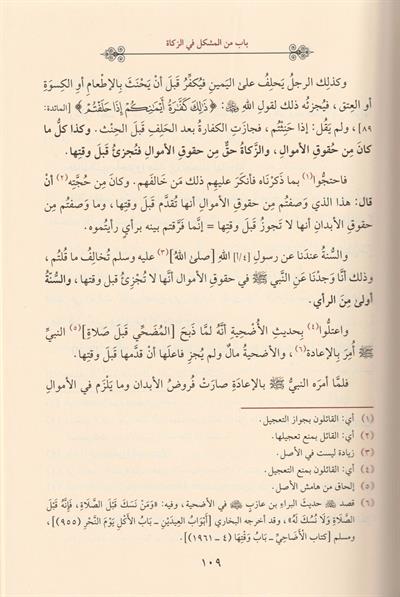 باب من المشكل في الزكاة
وكذلِك الرجلُ يَحلِف علىٰ اليَمينِ فيُكفِّرُ قَبلَ أنْ يَحْنَثَ بِالإطعامِ أو الكِسوَةِ
أو العِتق، فيُجزِئُه ذلك لقولِ اللهِ ﷻ: ﴿ذَٰلِكَ كَفَّٰرَةُ أَيْمَٰنِكُمْ إِذَا حَلَفْتُمْ﴾ [المائدة:
٨٩]، ولم يَقُل: إذا حَنِثْتُم، فجازَتِ الكفارةُ بعدَ الحَلِفِ قبلَ الحِنْث. وكذا كلُّ ما
كانَ مِن حُقوقِ الأموال، والزَّكاةُ حقٌّ مِن حقوقِ الأموالِ فتُجزِئُ قبلَ وقتِها.
فاحتجُّوا(١) بما ذَكَرْناه فأنكَرَ عليهِم ذلك مَن خالَفَهم. وكانَ مِن حُجَّتِه(٢) أنْ
قال: هذا الذي وَصفتُم مِن حقوقِ الأموالِ أنها تُقدَّم قبلَ وقتِها، وما وَصفتُم مِن
حقوقِ الأبدانِ أنها لا تَجوزُ قَبلَ وقتِها = إنَّما فرَّقتم بينه برأيٍ رأيتُموه.
والسُّنةُ عندَنا عن رسولِ [١/٤] اللهِ [صلىٰ اللهُ](٣) عليه وسلم تُخالِفُ ما قُلتُم،
وذلك أنَّا وَجَدْنا عَنِ النَّبي ﷺ في حقوقِ الأموالِ أنَّها لا تُجْزِئُ قبل وقتِها، والسُّنةُ
أولىٰ مِنَ الرأي.
واعتلُّوا(٤) بِحديثِ الأُضْحيةِ أنهُ لمَّا ذَبحَ [المُضَحِّي قَبلَ صَلاةِ](٥) النبيِّ
ﷺ أُمِرَ بالإعادة(٦)، والأُضحيةُ مالٌ ولم يُجزِ فاعلَها أنْ قدَّمها قَبلَ وقتِها.
فلمَّا أمرَه النبيُّ ﷺ بالإعادةِ صارَتْ فُروضُ الأبدانِ وما يَلْزَم في الأموالِ
(١) أي: القائلون بجواز التعجيل.
(٢) أي: القائل بمنع تعجيلها.
(٣) زيادة ليست في الأصل.
(٤) أي: القائلون بمنع التعجيل.
(٥) إلحاق من هامش الأصل.
(٦) قصد ﵀ حديثَ البراءِ بن عازبٍ ﵁ في الأضحية، وفيه: «وَمَنْ نَسَكَ قَبْلَ الصَّلَاةِ، فَإِنَّهُ قَبْلَ
الصَّلَاةِ وَلَا نُسُكَ لَهُ»، وقد أخرجه البخاري [أَبْوَابُ العِيدَيْنِ - بَابُ الأَكْلِ يَوْمَ النَّحْرِ (٩٥٥)]،
ومسلم [كتاب الأَضَاحِيِّ - بَابُ وَقْتِهَا (٤ - ١٩٦١)].
١٠٩